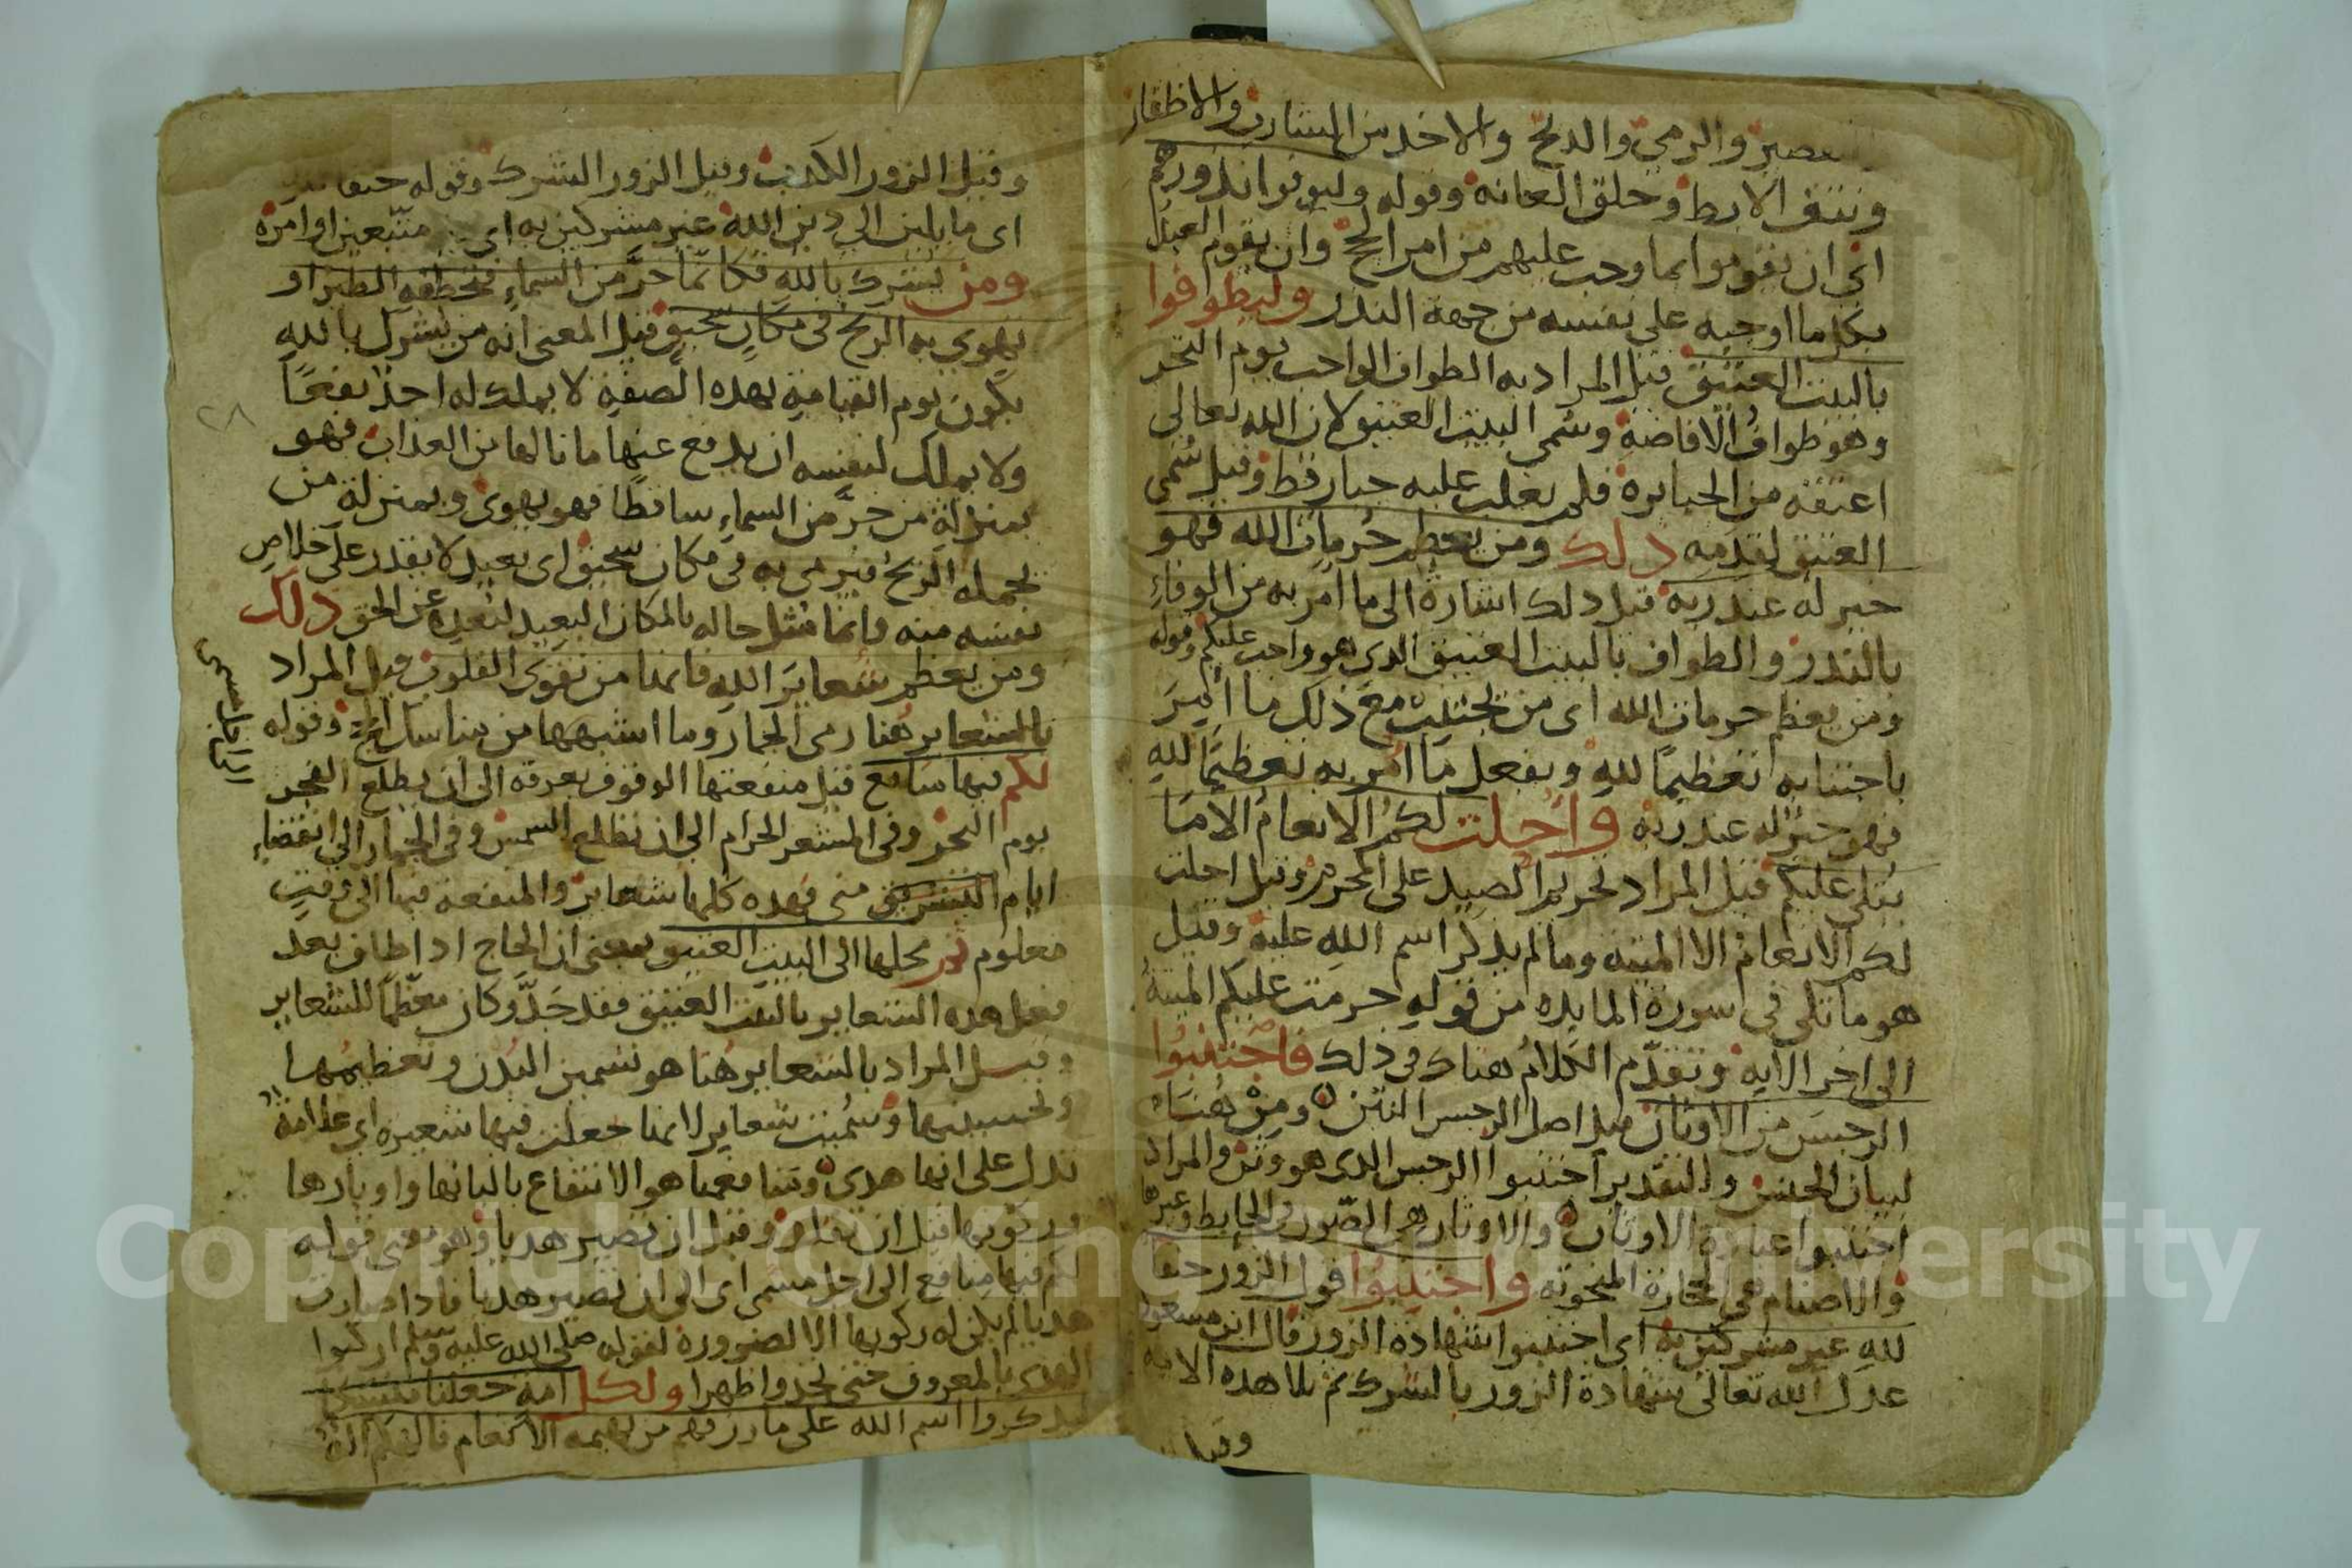 والرمي والذبح والاخذ من الشارب والاظفار
ونتف الابط وحلق العانه وقوله وليوفوا نذورهم
اي ان يقوموا بما وجب عليهم من امر الحج وان يقوم العبد
بكل ما اوجبه على نفسه من جهة النذر وليطوفوا
بالبيت العتيق قيل المراد به الطواف الواجب يوم النحر
وهو طواف الافاضة وسمي البيت العتيق لان الله تعالى
اعتقه من الجبابرة فلم يغلب عليه جبار قط وقيل سمي
العتيق لقدمه ذلك ومن يعظم حرمات الله فهو
خير له عند ربه قيل ذلك اشارة الى ما امر به من الوفاء
بالنذر والطواف بالبيت العتيق الذي هو واجب عليكم وقوله
ومن يعظم حرمات الله اي من يجتنب مع ذلك ما أمر
باجتنابه تعظيمًا لله ويفعل ما أمر به تعظيمًا لله
فهو خير له عند ربه وأحلت لكم الانعام الا ما
يتلى عليكم قيل المراد تحريم الصيد على المحرم وقيل احلت
لكم الانعام الا الميته وما لم يذكر اسم الله عليه وقيل
هو ما تلى في سورة المايده من قوله حرمت عليكم الميتة
الى اخر الايه وتقدم الكلام هناك في ذلك فاجتنبوا
الرجس من الاوثان قيل اصل الرجس النتن ومن هنا
لبيان الجنس والتقدير اجتنبوا الرجس الذي هو وثن والمراد
اجتنبوا عبادة الاوثان والاوثان هي الصور في الحايط وغيرها
والاصنام هي الحجارة المنحوته واجتنبوا قول الزور حنفا
لله غير مشركين به اي اجتنبوا شهادة الزور قال ابن مسعود
عدل الله تعالى شهادة الزور بالشرك ثم تلا هذه الايه
وقيل
وقيل الزور الكذب وقيل الزور الشرك وقوله حنفا
اي مايلين الى دين الله غير مشركين به اي متبعين اوامره
ومن يشرك بالله فكانما خرَّ من السماء فتخطفه الطير او
تهوي به الريح في مكانٍ سحيق قيل المعنى انه من يشرك بالله
يكون يوم القيامة بهذه الصفة لا يملك له احد نفعًا
ولا يملك لنفسه ان يدفع عنها ما نالها من العذاب فهو
بمنزلة من خرَّ من السماء ساقطًا فهو يهوي وبمنزلة من
تحمله الريح فترمي به في مكان سحيق اي بعيد لا يقدر على خلاص
نفسه منه وانما مثل حاله بالمكان البعيد لبعده عن الحق ذلك
ومن يعظم شعاير الله فانها من تقوى القلوب قيل المراد
بالشعاير هنا رمي الجمار وما اشبهها من مناسك الحج وقوله
لكم فيها منافع قيل منفعتها الوقوف بعرفة الى ان يطلع الفجر
يوم النحر وفي المشعر الحرام الى ان تطلع الشمس وفي الجمار الى انقضاء
ايام التشريق منى فهذه كلها شعاير والمنفعة فيها الى وقتٍ
معلوم ثم محلها الى البيت العتيق بمعنى ان الحاج اذا طاف بعد
فعل هذه الشعاير بالبيت العتيق فقد حَلَّ وكان معظمًا للشعاير
وقيل المراد بالشعاير هُنا هو تسمين البُدن وتعظيمها
وتحسينها وسُميت شعاير لانها جعلت فيها شعيره اي علامة
تدل على انها هدي ومنافعها هو الانتفاع بالبانها واوبارها
وركوبها قيل ان تقلد وقيل ان تصير هديا وهو معنى قوله
لكم فيها منافع الى اجل مسمى اي الى ان تصير هديا فاذا صارت
هديا لم يكن له ركوبها الا لضرورة لقوله صلى الله عليه وسلم اركبوا
الهدي بالمعروف حتى تجدوا ظهرا ولكل امة جعلنا منسكا
ليذكروا اسم الله على ما رزقهم من بهيمة الانعام فالهكم اله
٢٨
Copyright © King Saud University